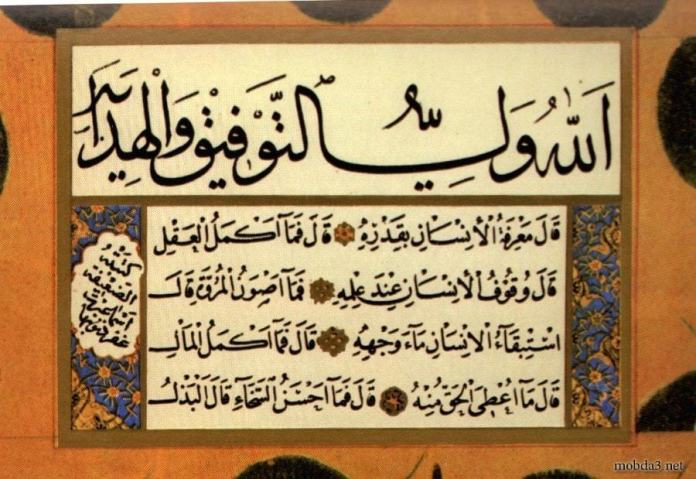 اَللّٰهُ وَلِيُّ التَّوْفِيقِ وَالْهِدَايَةِ
قَالَ مَعْرِفَةُ الْاِنْسَانِ بِقَدْرِهِ قَالَ فَمَآ اَكْمَلُ الْعَقْلِ
قَالَ وُقُوفُ الْاِنْسَانِ عِنْدَ عِلْمِهِ فَمَآ اَصْوَنُ الْمُرُوَّةِ قَالَ
اسْتِبْقَآءُ الْاِنْسَانِ مَآءَ وَجْهِهِ قَالَ فَمَآ اَكْمَلُ الْمَالِ
قَالَ مَآ اُعْطِىَ الْحَقُّ مِنْهُ قَالَ فَمَآ اَحْسَنُ السَّخَآءِ قَالَ الْبَذْلُ
كتبته
الضعيفة
اسماء عبرت
غفر ذنوبها
mobda3.net